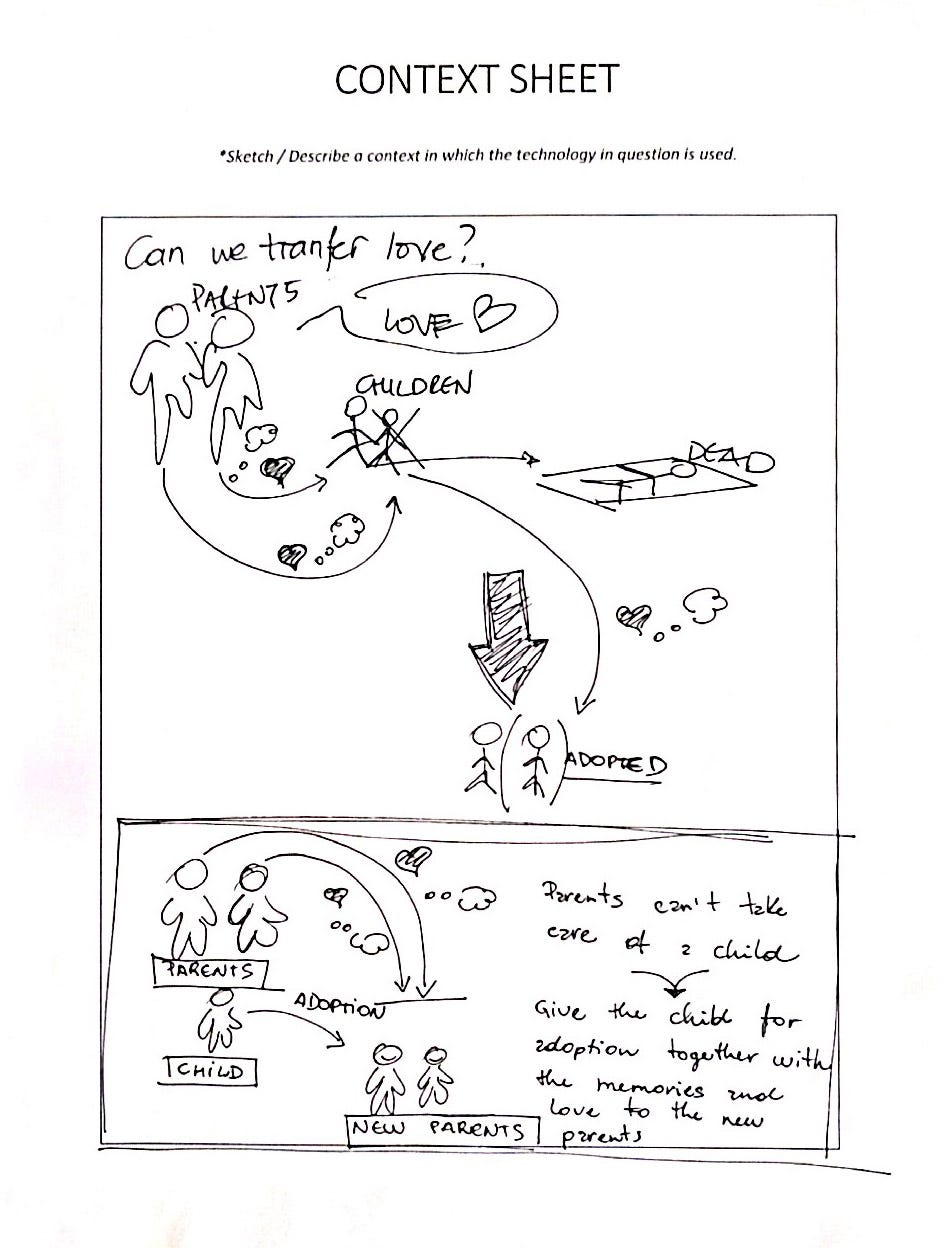 CONTEXT SHEET
*Sketch / Describe a context in which the technology in question is used.
Can we tranfer love?
PARENTS
LOVE
CHILDREN
DEAD
ADOPTED
PARENTS
ADOPTION
CHILD
NEW PARENTS
Parents can't take
care of a child
Give the child for
adoption together with
the memories and
love to the new
parents